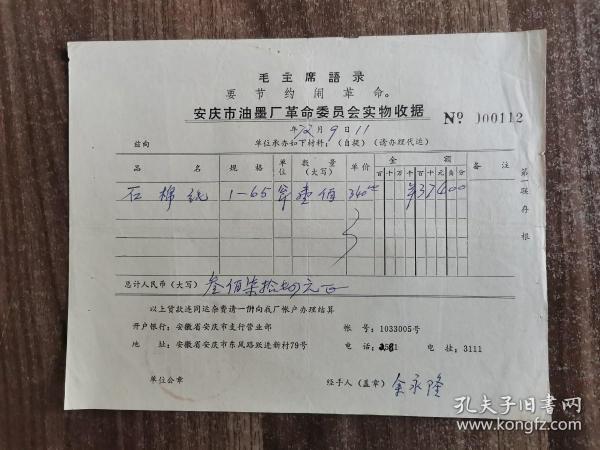 毛主席語录
要节约闹革命。
安庆市油墨厂革命委员会实物收据 № 000112
年 月 9 日 11
兹向 单位承办如下材料：(自提)(请办理代运)
品名 规格 单位 数量(大写) 单价 金额 备注
百 十 万 千 百 十 元 角 分
石棉纸 1-65 壹佰 340 ¥37400
第一联存根
总计人民币（大写） 叁佰柒拾 元正
以上贷款连同运杂费请一併向我厂帐户办理结算
开户银行：安徽省安庆市支行营业部 帐号：1033005号
地址：安徽省安庆市东风路跃进新村79号 电话： 电挂：3111
单位公章 经手人（盖章） 余永隆
孔夫子旧书网
www.kongfz.com